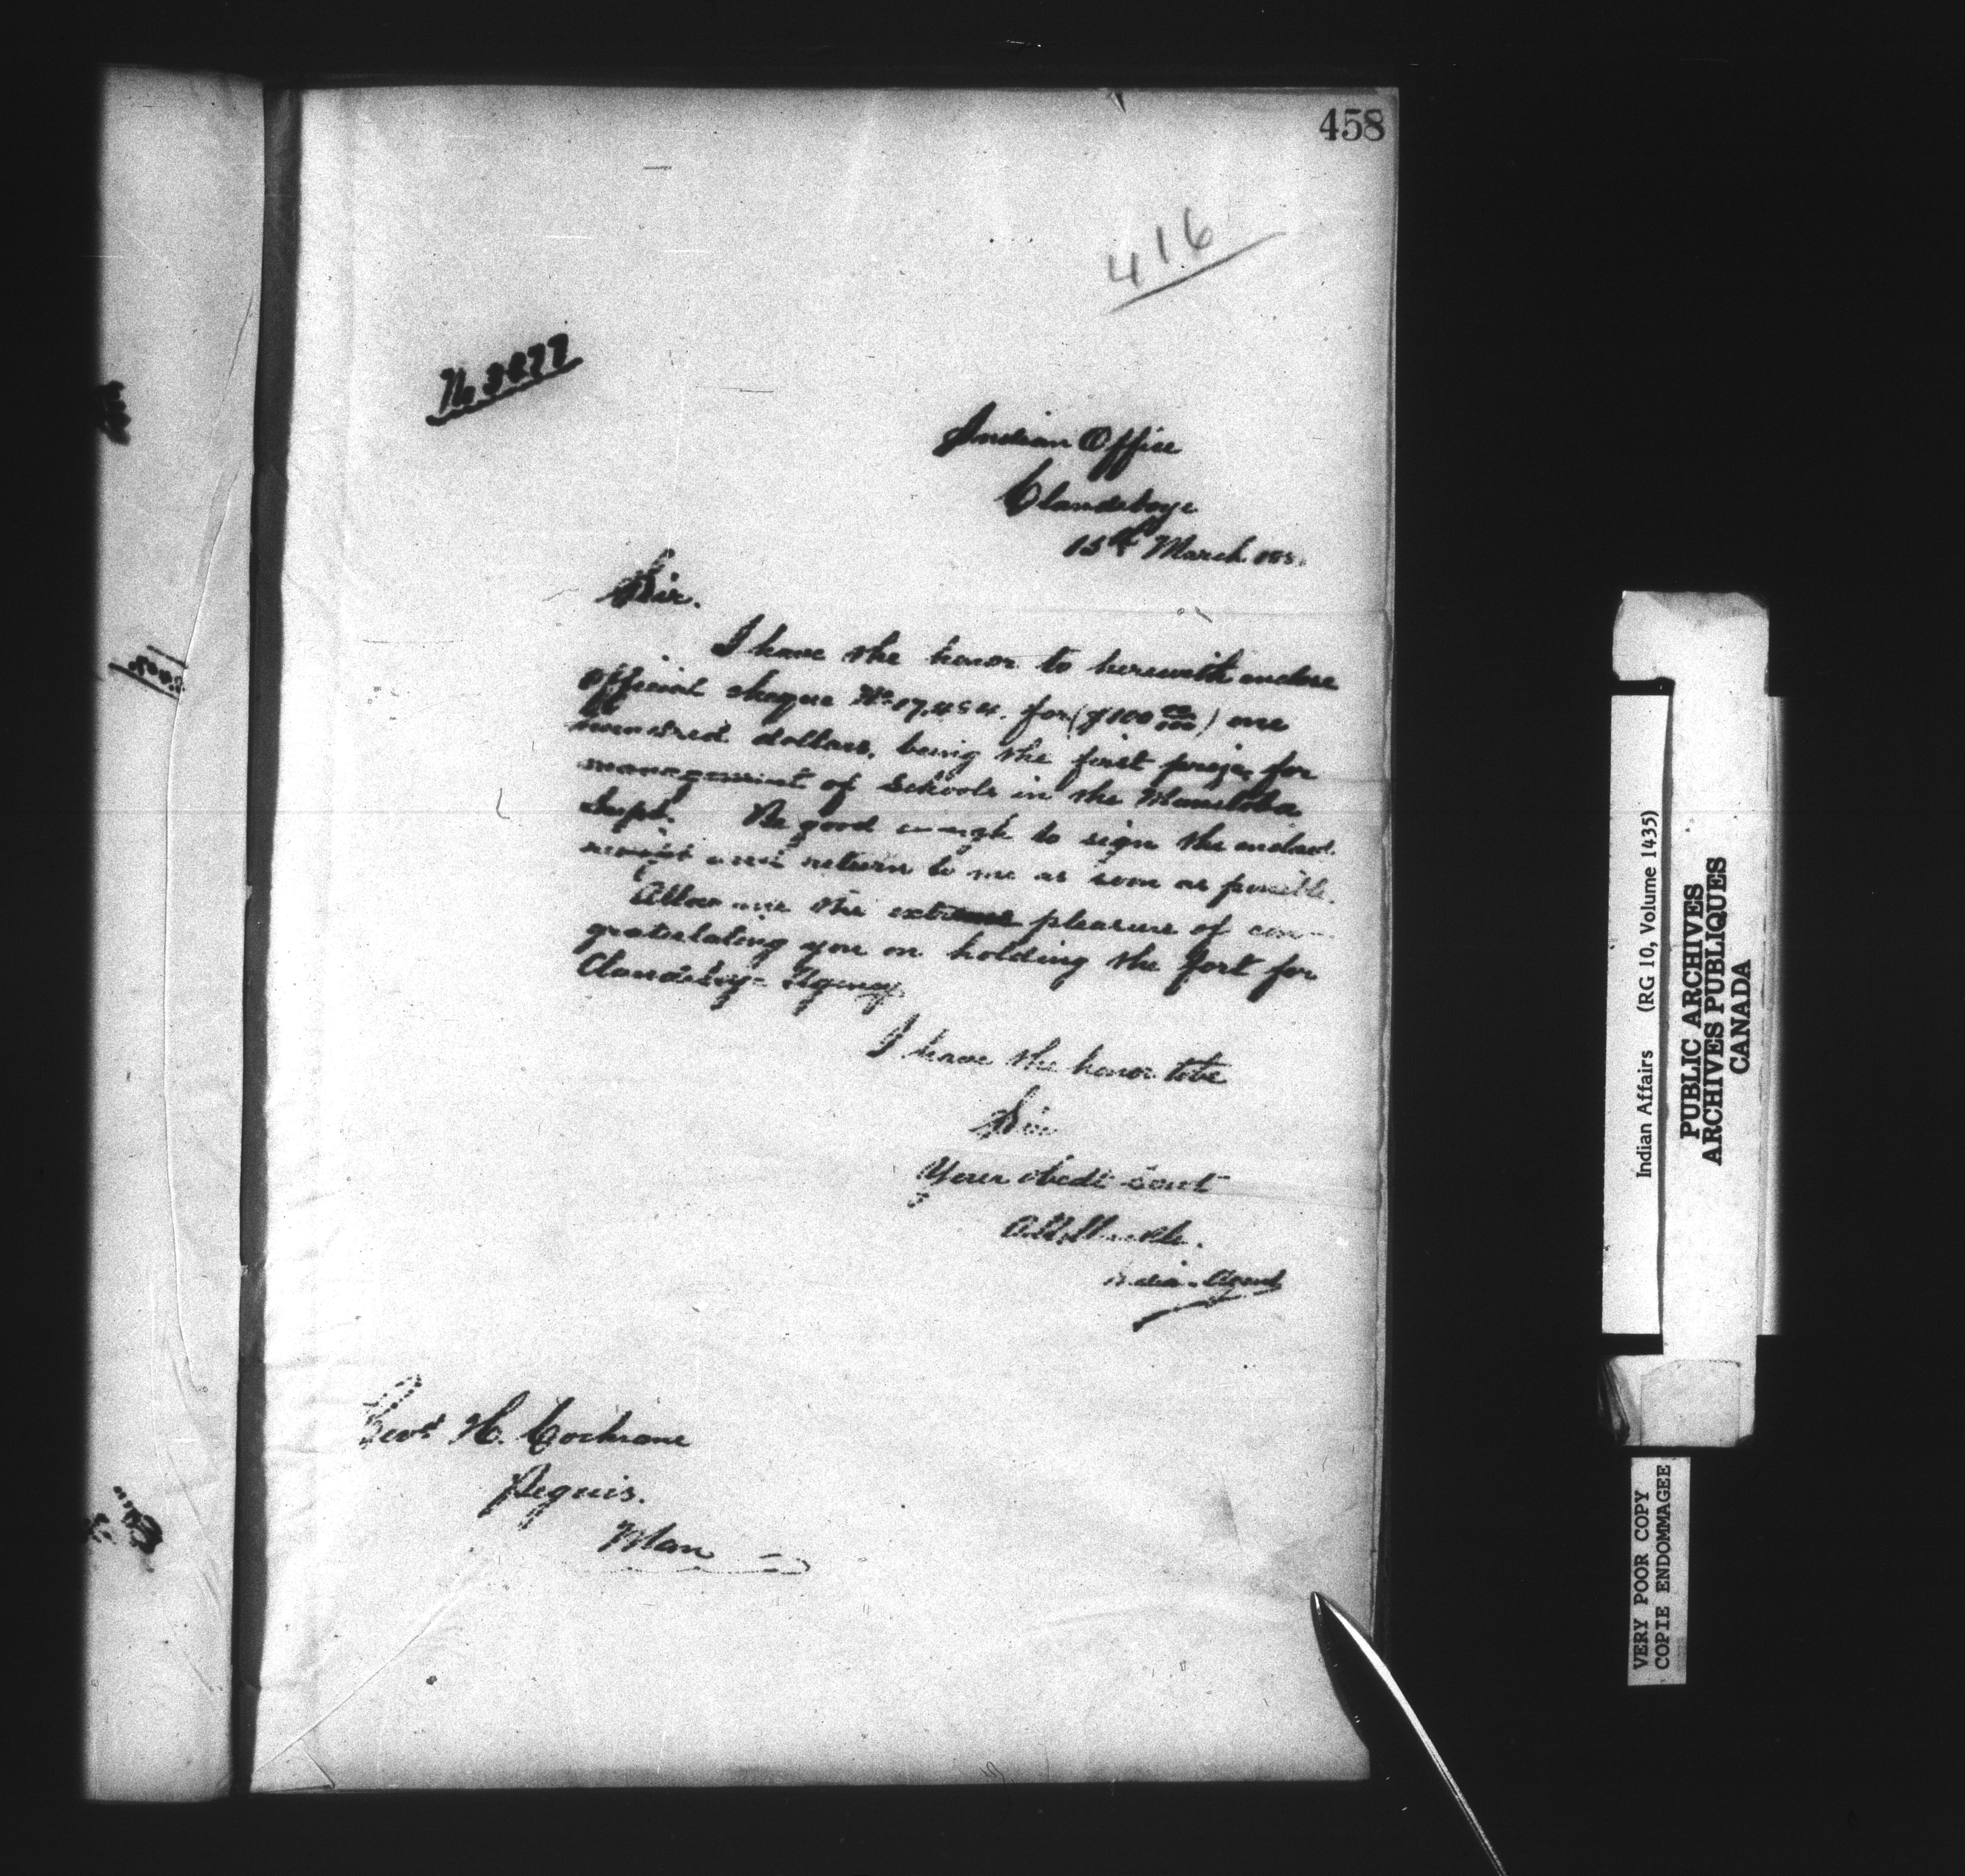 458
416
No 3477
Indian Office
Clandeboye
15th March 188
Sir.
I have the honor to herewith enclose
official cheque No. 17,454. for ($100 00/100) one
hundred dollars, being the first prize, for
management of Schools in the Manitoba
Supt. Be good enough to sign the enclosed
receipt and return to me as soon as possible.
Allow me the extreme pleasure of con-
gratulating you on holding the fort for
Clandeboye Agency
I have the honor to be
Sir
Your obedt servt
A. M. Muckle.
Indian Agent
Revd H. Cochrane
Peguis.
Man
Indian Affairs (RG 10, Volume 1435)
PUBLIC ARCHIVES
ARCHIVES PUBLIQUES
CANADA
VERY POOR COPY
COPIE ENDOMMAGEE